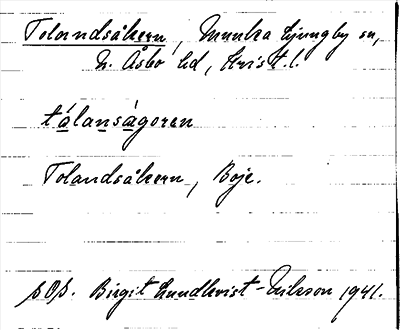 Tolandsåkern, Munka Ljungby sn,
N. Åsbo hd, Krist. l.
tålanságoren
Tolandsåkern, Boje.
Birgit Lundkvist-Eriksson 1941.